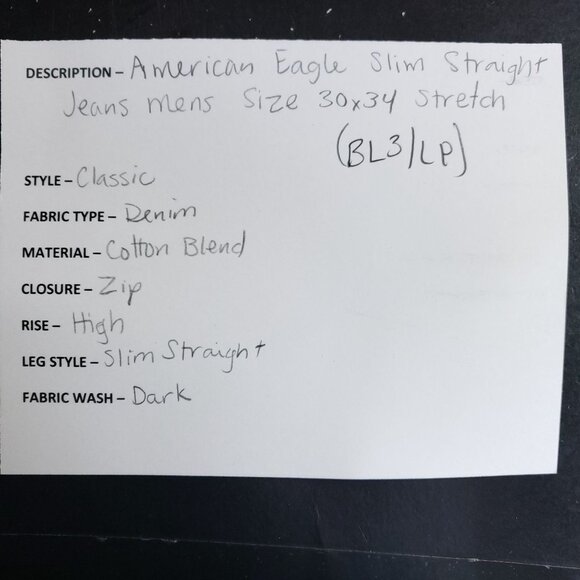 DESCRIPTION – American Eagle Slim Straight
Jeans Mens Size 30x34 Stretch
(BL3/LP)
STYLE – Classic
FABRIC TYPE – Denim
MATERIAL – Cotton Blend
CLOSURE – Zip
RISE – High
LEG STYLE – Slim Straight
FABRIC WASH – Dark